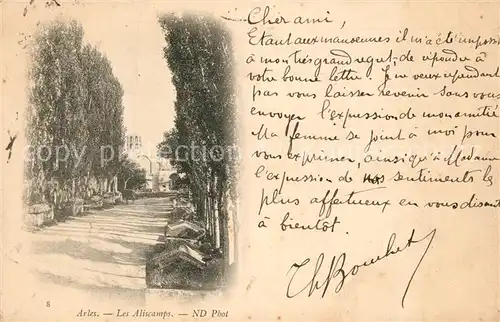 Cher ami,
Etant aux manœuvres il m'a été impossi
à mon très grand regret de répondre à
votre bonne lettre. Je ne veux cependant
pas vous laisser revenir sans vous
envoyer l'expression de mon amitié
Ma femme se joint à moi pour
vous exprimer, ainsi qu'à Madame
l'expression de nos sentiments les
plus affectueux en vous disant
à bientôt.
8
Arles. — Les Aliscamps. — ND Phot